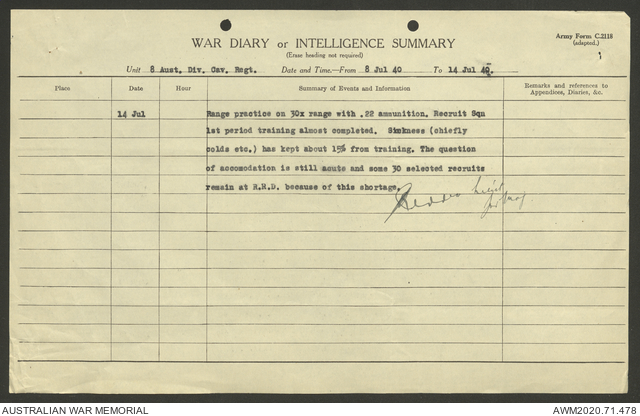 Army Form C.2118
(adapted.)
WAR DIARY or INTELLIGENCE SUMMARY
(Erase heading not required)
1
Unit 8 Aust. Div. Cav. Regt. Date and Time.—From 8 Jul 40 To 14 Jul 40.
Place Date Hour Summary of Events and Information Remarks and references to Appendices, Diaries, &c.
14 Jul Range practice on 30x range with .22 ammunition. Recruit Sqn
1st period training almost completed. Sickness (chiefly
colds etc.) has kept about 15% from training. The question
of accomodation is still acute and some 30 selected recruits
remain at R.R.D. because of this shortage.
AUSTRALIAN WAR MEMORIAL
AWM2020.71.478